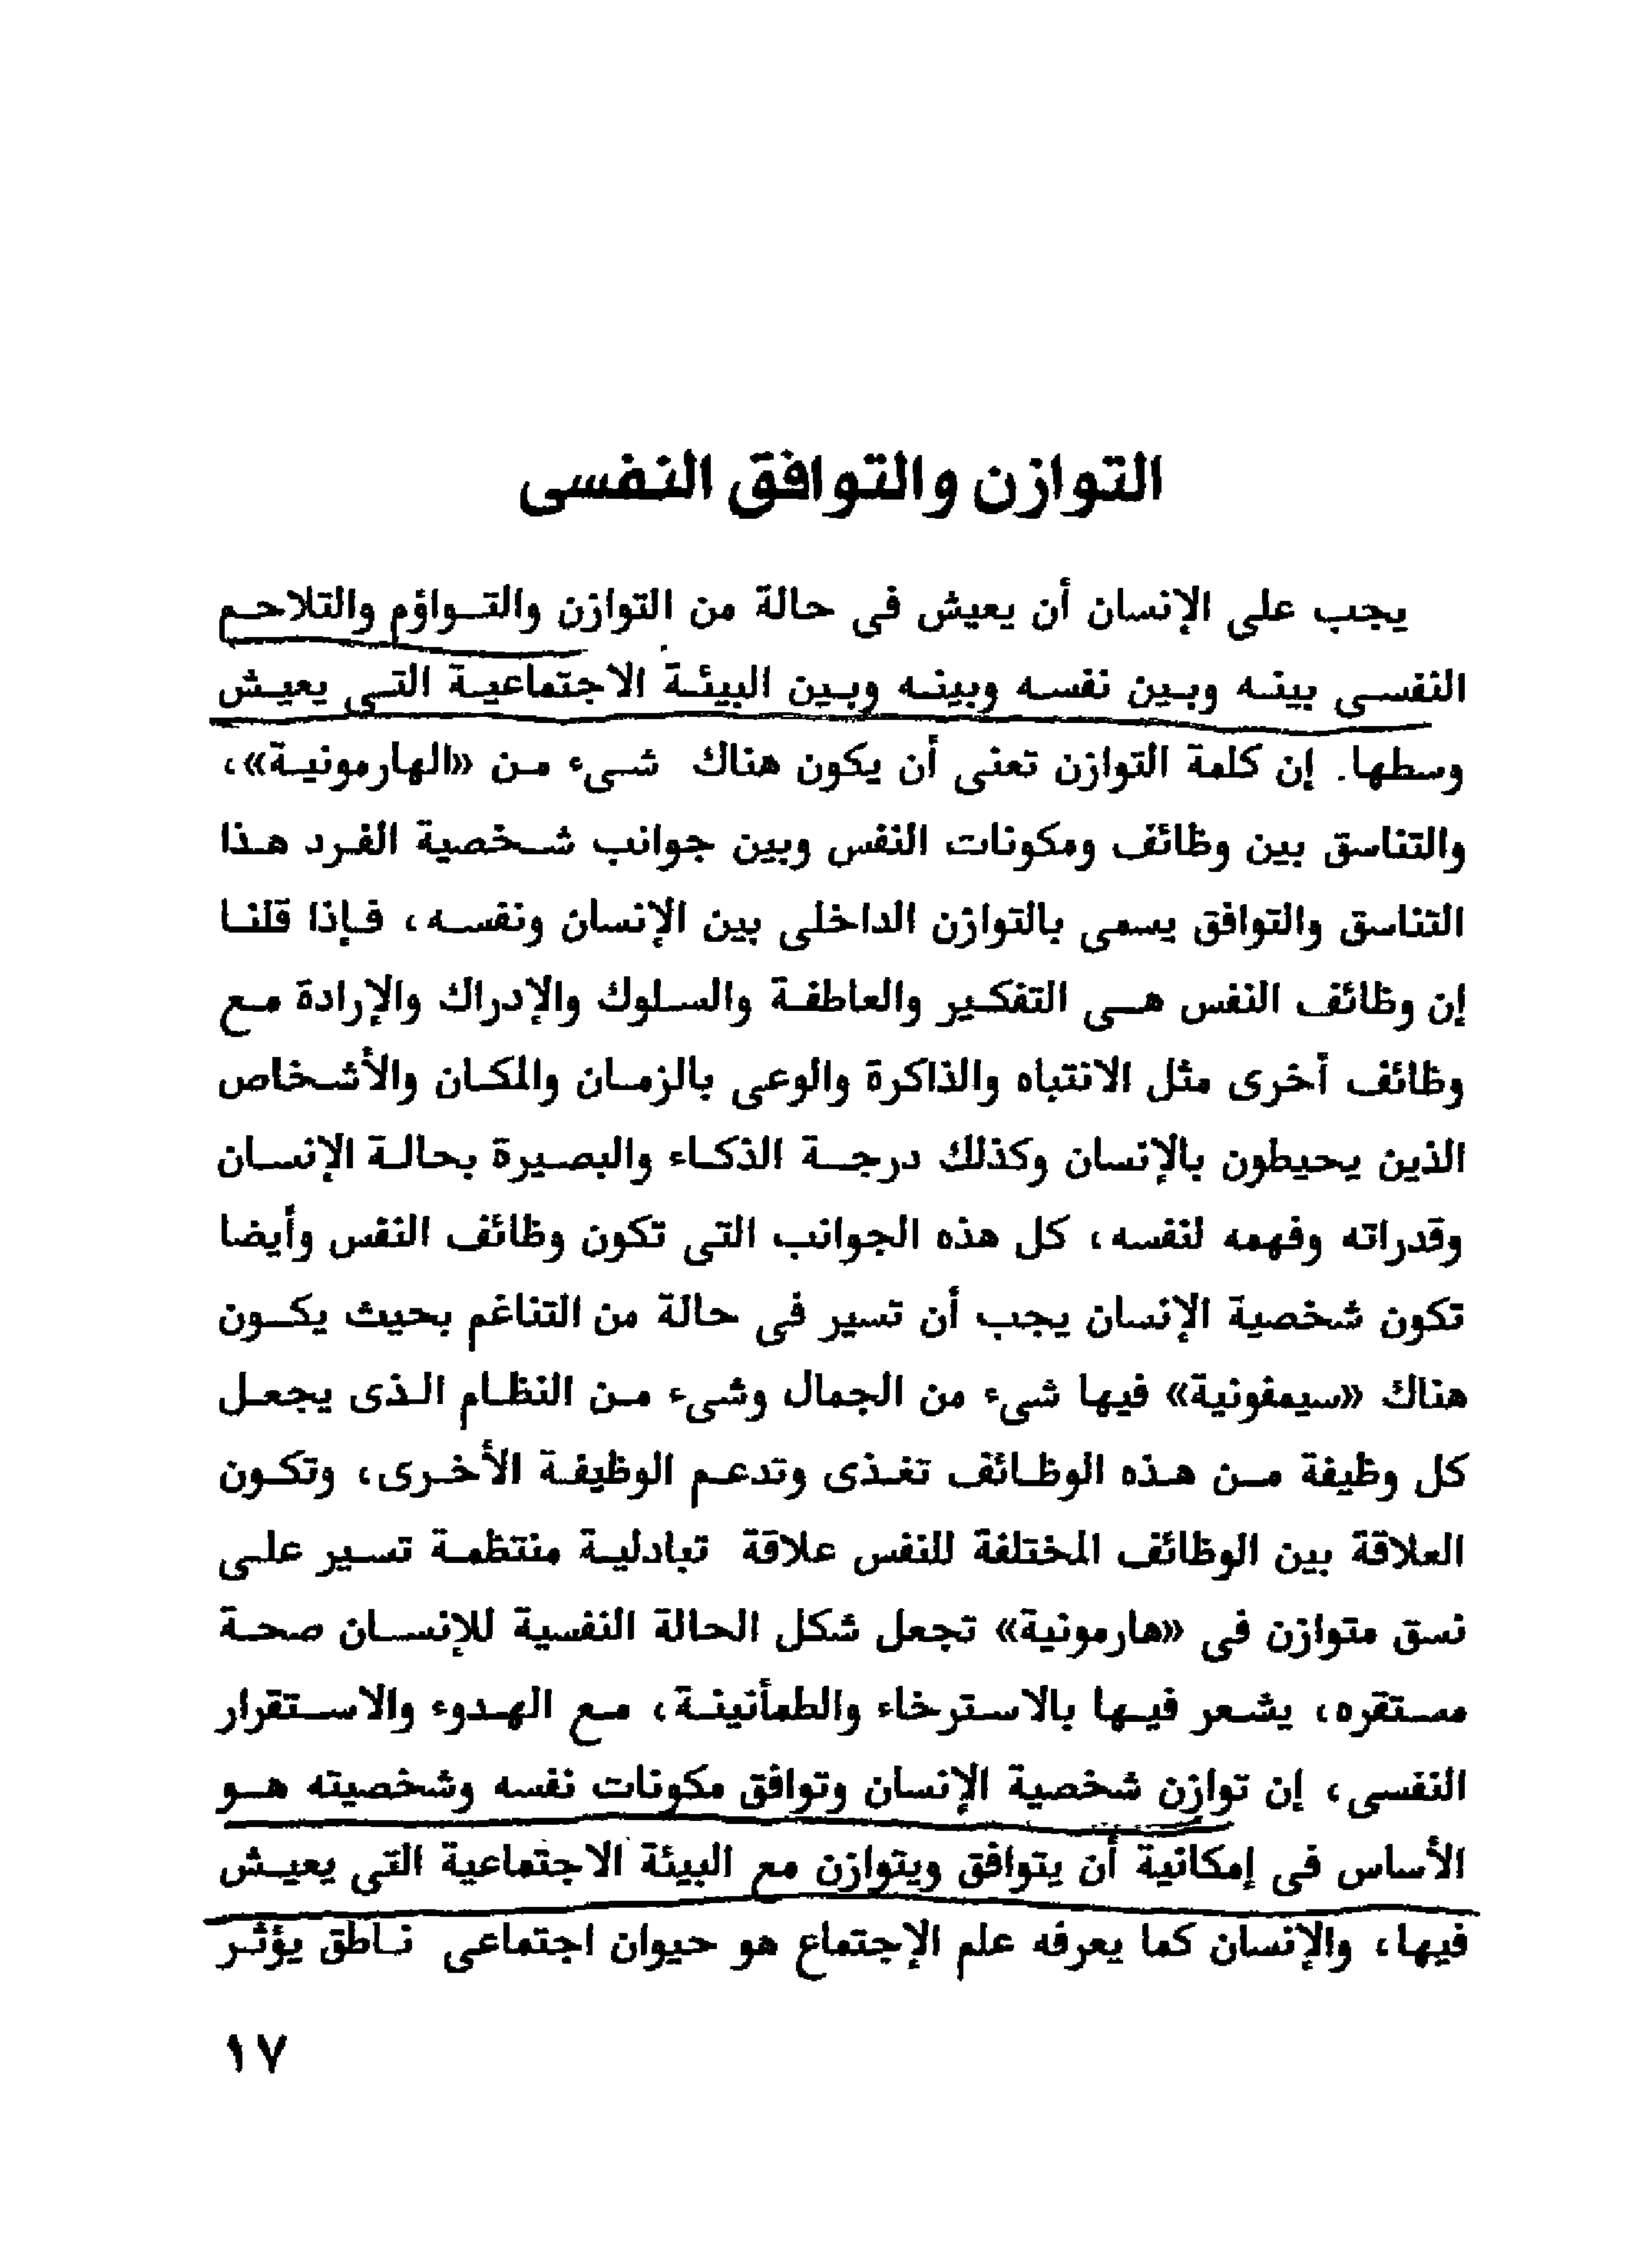 التوازن والتوافق النفسى
يجب على الإنسان أن يعيش فى حالة من التوازن والتواؤم والتلاحم
النفسى بينه وبين نفسه وبينه وبين البيئة الاجتماعية التى يعيش
وسطها. إن كلمة التوازن تعنى أن يكون هناك شىء من «الهارمونية»،
والتناسق بين وظائف ومكونات النفس وبين جوانب شخصية الفرد هذا
التناسق والتوافق يسمى بالتوازن الداخلى بين الإنسان ونفسه، فإذا قلنا
إن وظائف النفس هى التفكير والعاطفة والسلوك والإدراك والإرادة مع
وظائف أخرى مثل الانتباه والذاكرة والوعى بالزمان والمكان والأشخاص
الذين يحيطون بالإنسان وكذلك درجة الذكاء والبصيرة بحالة الإنسان
وقدراته وفهمه لنفسه، كل هذه الجوانب التى تكون وظائف النفس وأيضا
تكون شخصية الإنسان يجب أن تسير فى حالة من التناغم بحيث يكون
هناك «سيمفونية» فيها شىء من الجمال وشىء من النظام الذى يجعل
كل وظيفة من هذه الوظائف تغذى وتدعم الوظيفة الأخرى، وتكون
العلاقة بين الوظائف المختلفة للنفس علاقة تبادلية منتظمة تسير على
نسق متوازن فى «هارمونية» تجعل شكل الحالة النفسية للإنسان صحة
مستقره، يشعر فيها بالاسترخاء والطمأنينة، مع الهدوء والاستقرار
النفسى، إن توازن شخصية الإنسان وتوافق مكونات نفسه وشخصيته هو
الأساس فى إمكانية أن يتوافق ويتوازن مع البيئة الاجتماعية التى يعيش
فيها، والإنسان كما يعرفه علم الإجتماع هو حيوان اجتماعى ناطق يؤثر
١٧